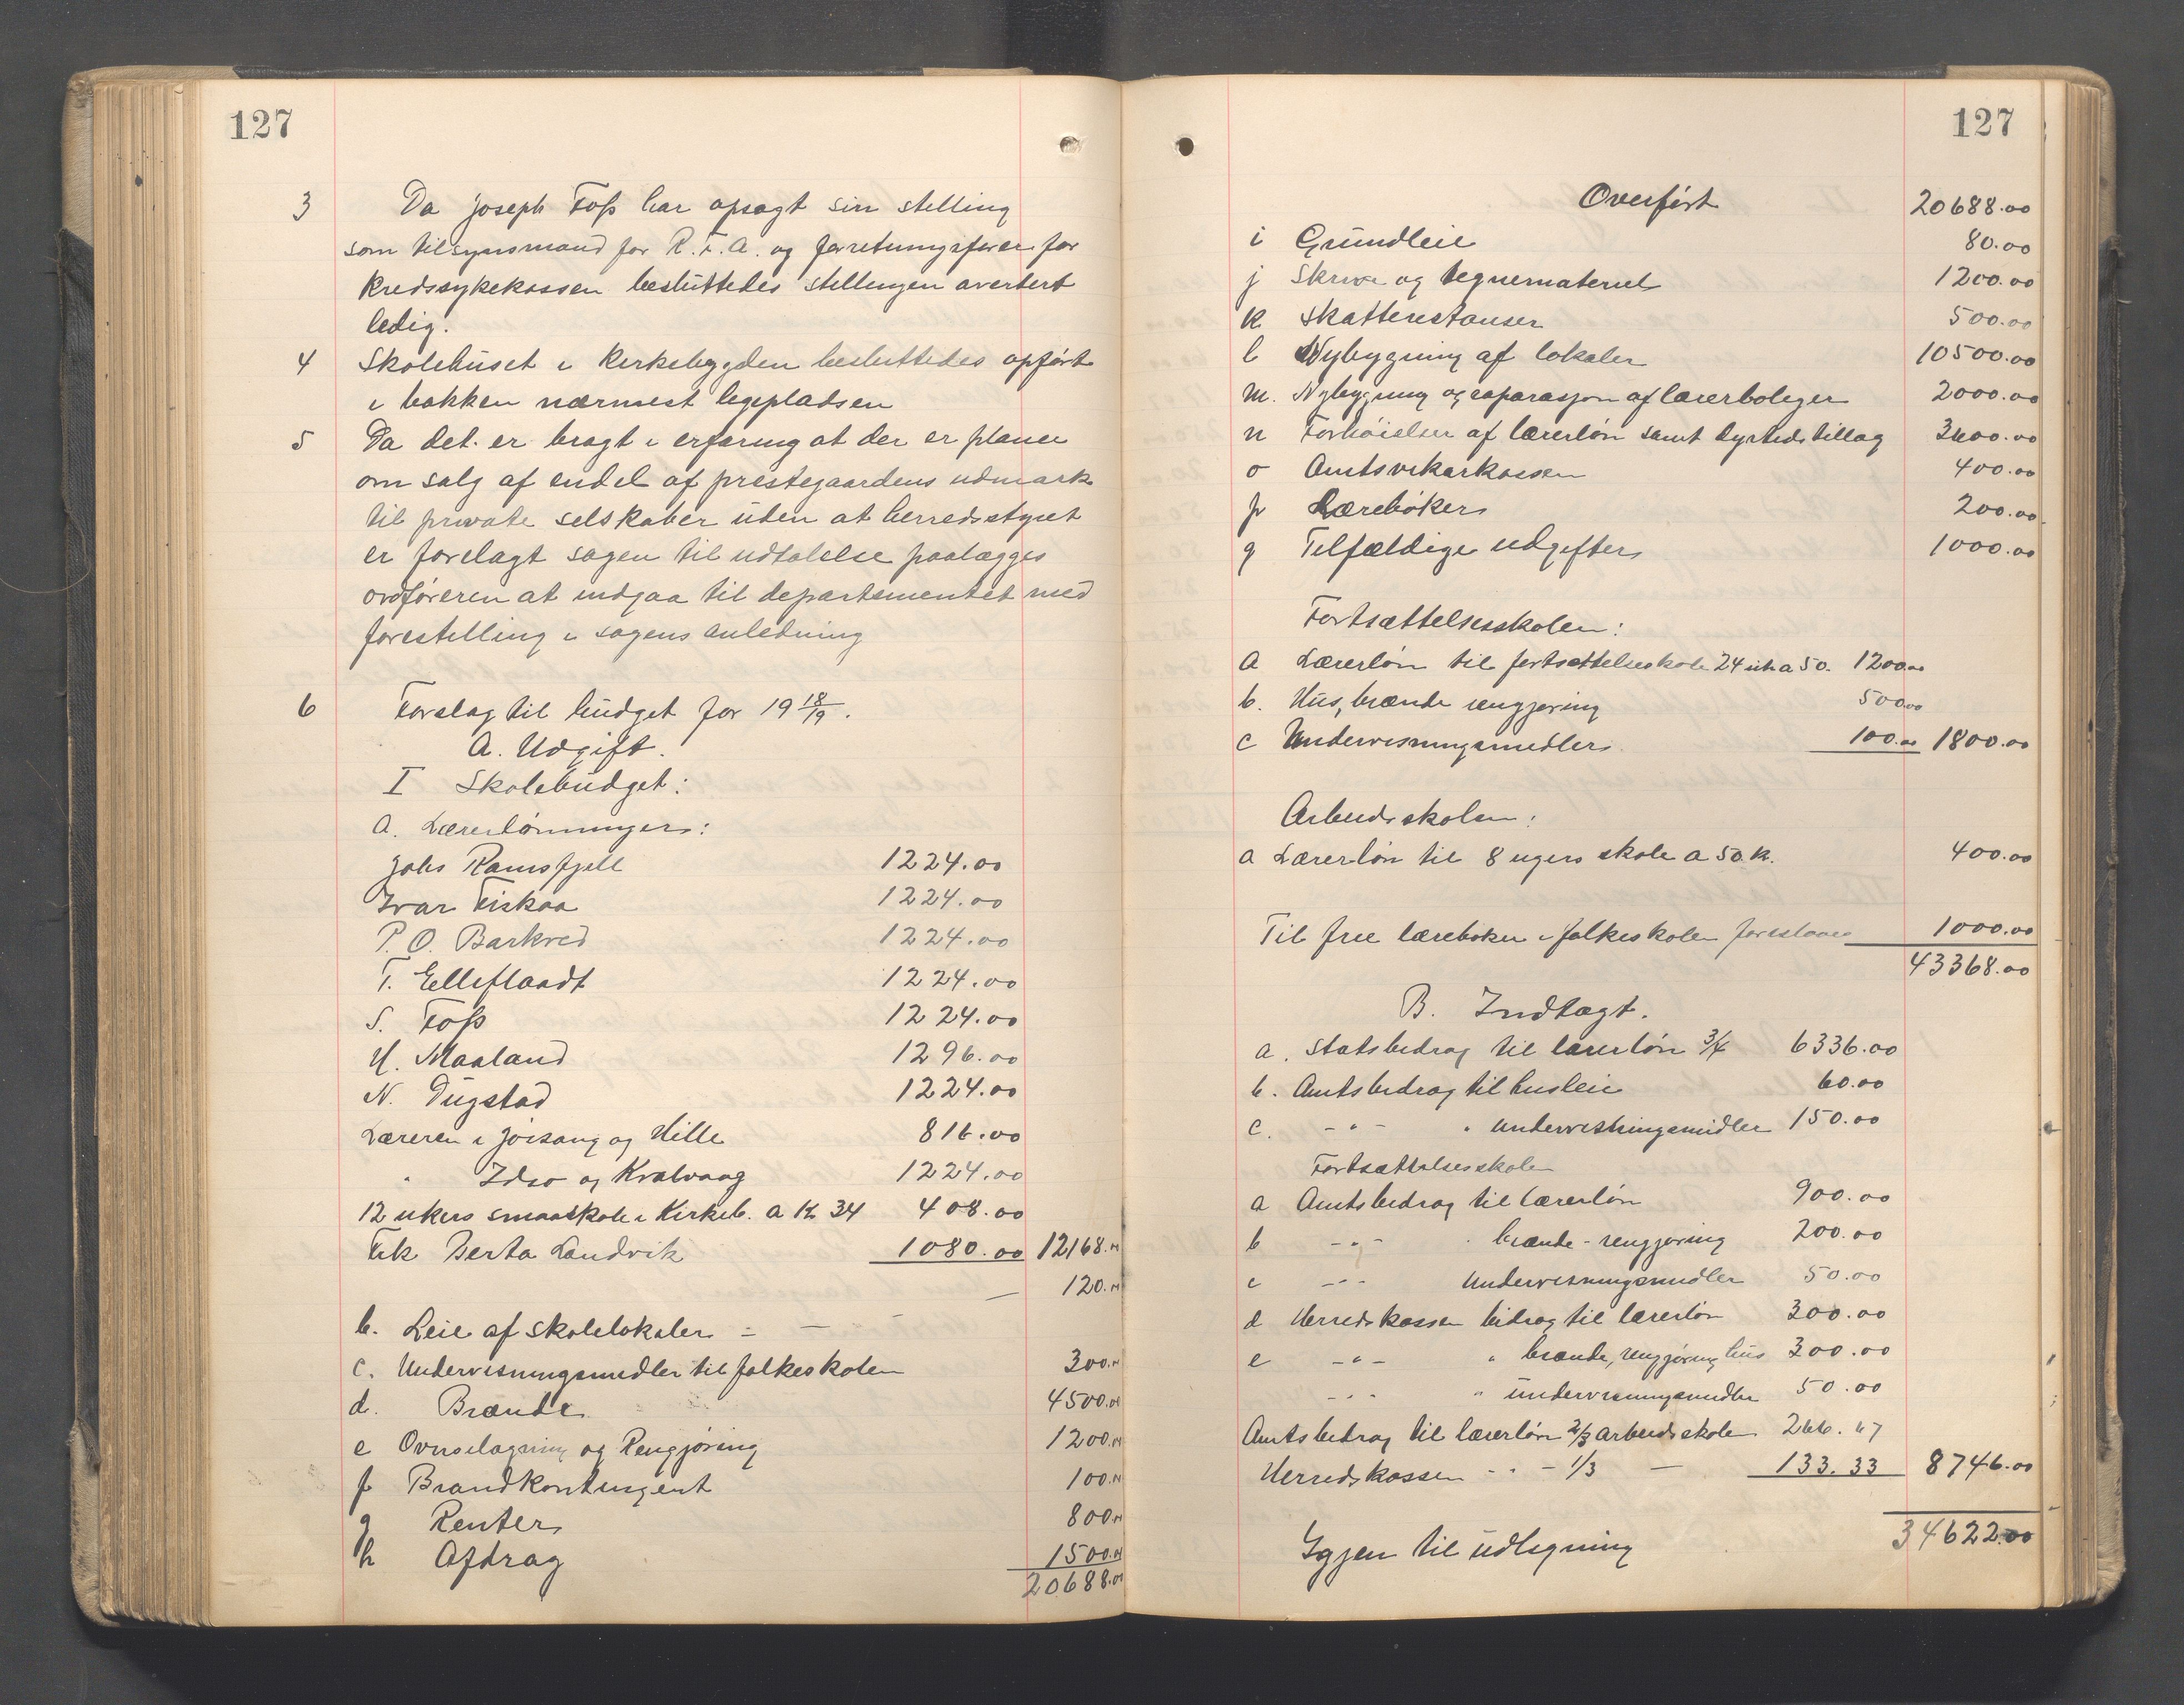 127
3 Da Joseph Foss har opsagt sin stelling
som tilsynsmand for R.T.A. og forretningsfører for
kredssykekassen besluttedes stellingen avertert
ledig.
4 Skolehuset i Kirkebygden besluttedes opført
i bakken nærmest legepladsen
5 Da det er bragt i erfaring at der er planer
om salg af endel af prestegaardens udmark
til private selskaber uden at herredsstyret
er forelagt sagen til udtalelse paalægges
ordføreren at indgaa til departementet med
forestilling i sagens anledning
6 Forslag til budget for 19 18/19.
A. Udgift.
I Skolebudget:
a. Lærerlønninger:
Johs Ramsfjell 1224.00
Ivar Fiskaa 1224.00
P. O. Barkved 1224.00
T. Elleflaadt 1224.00
S. Foss 1224.00
H. Maaland 1296.00
N. Dugstad 1224.00
Læreren i Jøsang og Hille 816.00
" Idso og Kvalvaag 1224.00
12 ukers smaaskole i Kirkeb. a Kr 34 408.00
Frk Berta Landvik 1080.00 12168.00
120.00
b. Leie af skolelokaler - — -
c. Undervisningsmidler til folkeskolen 300.00
d. Brænde 4500.00
e Ovnselagning og Rengjøring 1200.00
f Brandkontingent 100.00
g Renter 800.00
h Afdrag 1500.00
20688.00
127
Overført 20688.00
i Grundleie 80.00
j Skrive og tegnemateriel 1200.00
k Skatterestanser 500.00
l Nybygning af lokaler 10500.00
m. Nybygning og raparasjon af lærerboliger 2000.00
n Forhøielser af lærerløn samt dyrtidstillæg 3600.00
o Amtsvikarkassen 400.00
p Lærebøker 200.00
q Tilfældige udgifter 1000.00
Fortsættelsesskolen:
a Lærerløn til fortsættelseskole 24 uk a 50. 1200.00
b. Hus, brænde rengjøring 500.00
c Undervisningsmidler 100.00 1800.00
Arbeidsskolen:
a Lærerløn til 8 ugers skole a 50 k. 400.00
Til frie lærebøker i folkeskolen foreslaaes 1000.00
43368.00
B. Indtægt.
a. Statsbidrag til lærerløn 3/4 6336.00
b. Amtsbidrag til husleie 60.00
c. - " - " undervisningsmidler 150.00
Fortsættelsesskolen
a Amtsbidrag til lærerløn 900.00
b - " - " brænde - rengjøring 200.00
c - " - undervisningsmidler 50.00
d Herredskassen bidrag til lærerløn 300.00
e - " - " brænde, rengjøring hus 300.00
- " - " undervisningsmidler 50.00
Amtsbidrag til lærerløn 2/3 arbeidsskole 266.67
Herredskassen - " - 1/3 — 133.33 8746.00
Igjen til udligning 34622.00